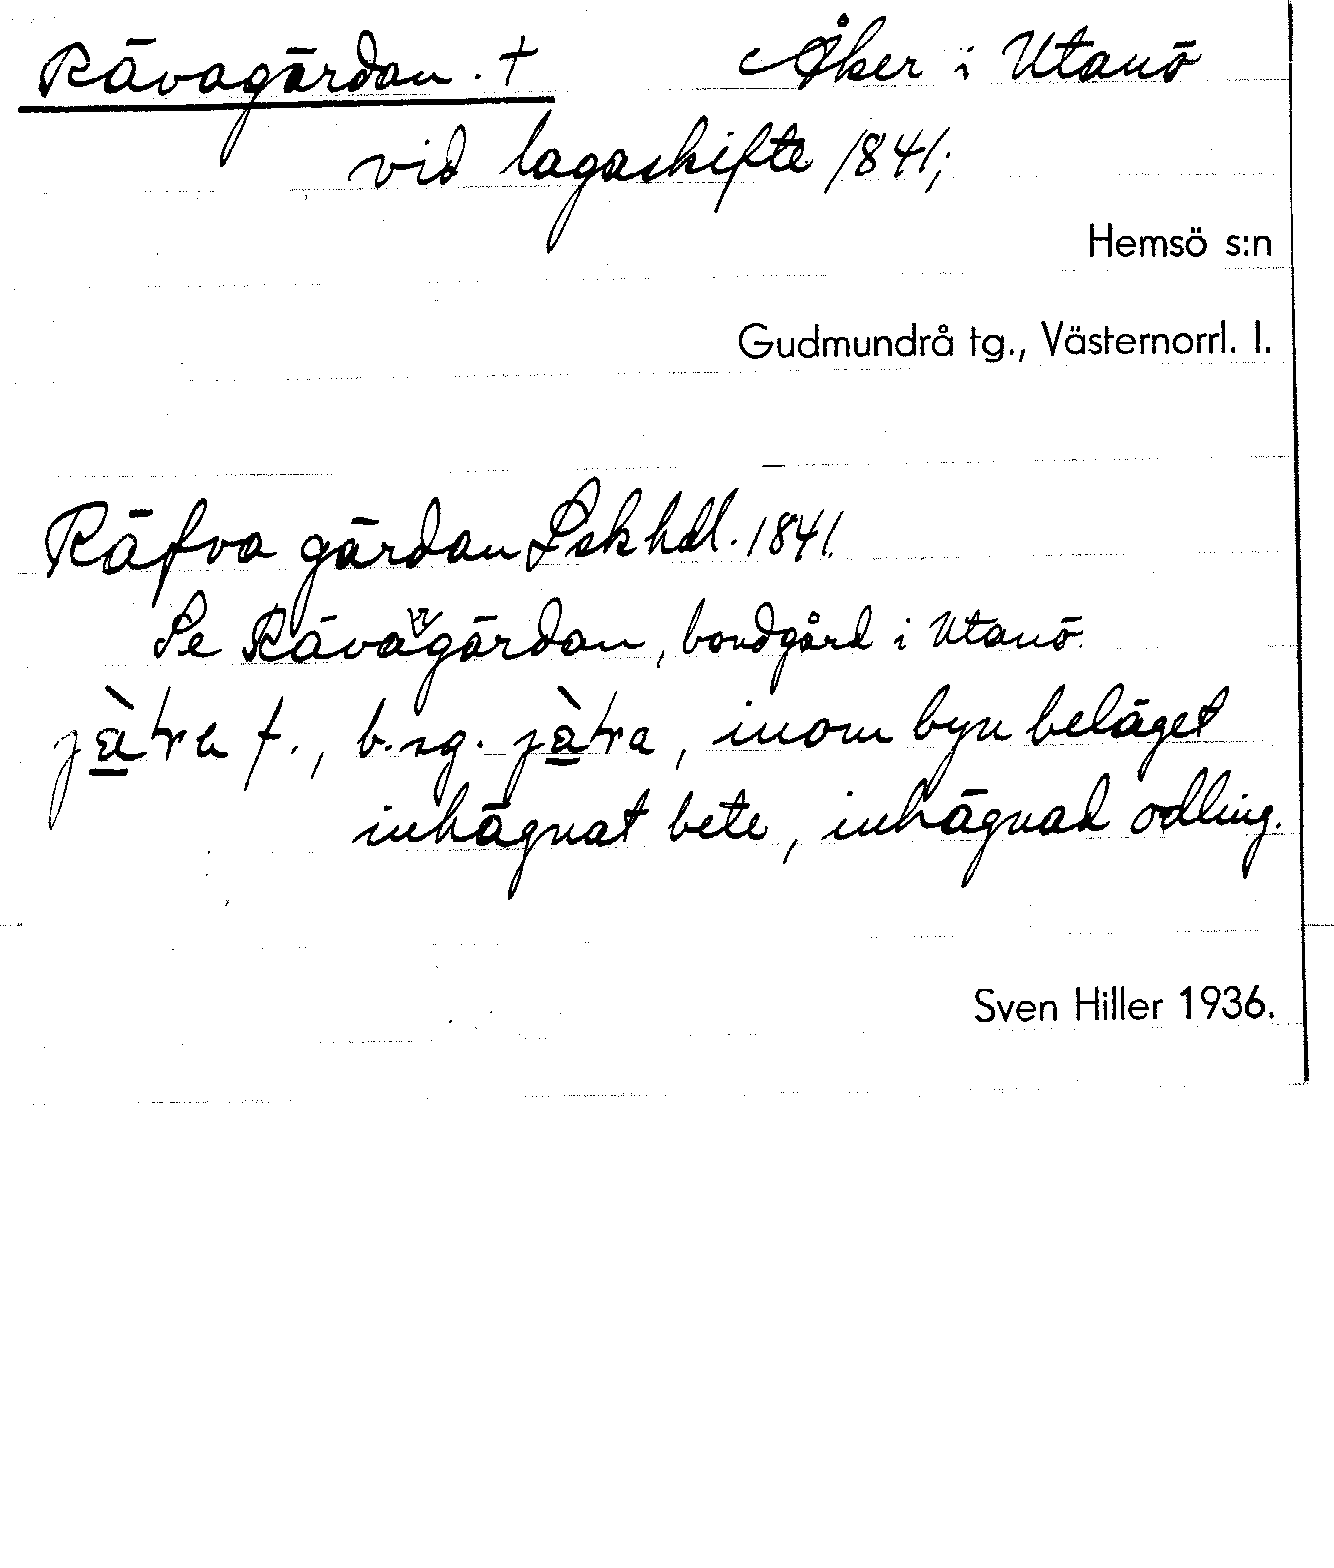 Rävagärdan. † Åker i Utanö
vid lagaskifte 1841;
Hemsö s:n
Gudmundrå tg., Västernorrl. l.
Räfva gärdan Lskhdl. 1841.
Se Rävagärdan, bondgård i Utanö.
f., b. sg. , inom byn beläget
inhägnat bete, inhägnad odling.
Sven Hiller 1936.